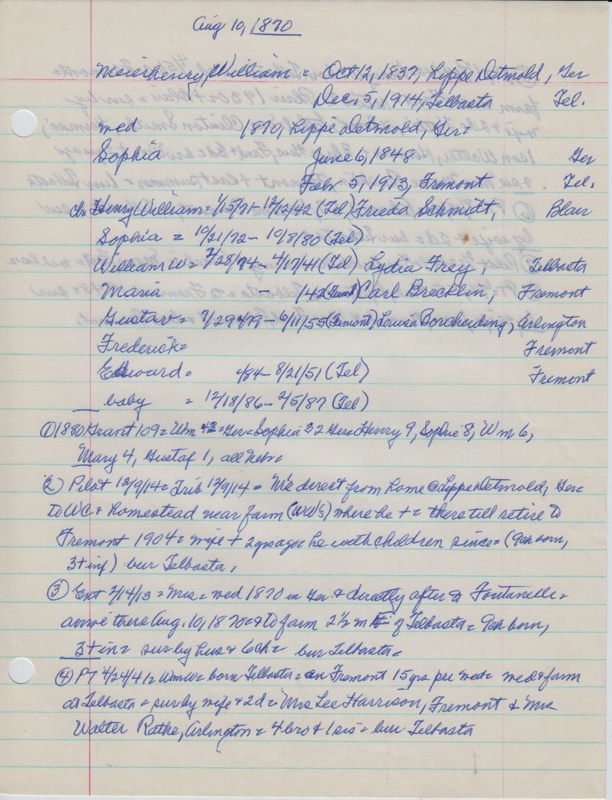 Aug 10, 1870
Meierhenry, William = Oct 12, 1837, Lippe Detmold, Ger
Dec 5, 1914, Telbasta Tel.
med 1870, Lippe Detmold, Ger =
Sophia June 6, 1848 Ger
Febr 5, 1913, Fremont Tel.
Ch = Henry William = 1/15/71 - 12/12/42 (Tel) Frieda Schmidt, Blair
Sophia = 10/21/72 - 10/8/80 (Tel)
William W = 7/28/74 - 4/17/41 (Tel) Lydia Frey, Telbasta
Maria - /42 Carl Brecklin, Fremont
Gustav = 7/29/79 - 6/11/55 (Fremont) Louisa Borcheiding, Arlington
Frederick = Fremont
Edward = /84 - 8/21/51 (Tel) Fremont
baby = 12/18/86 - 2/5/87 (Tel)
① 1880 Grant 109 = Wm 42 Ger = Sophia 32 Ger = Henry 9, Sophie 8, Wm 6,
Mary 4, Gustaf 1, all Nebr =
② Pilot 12/9/14 = Trib 12/9/14 = We direct from home @ Lippe Detmold, Ger
to WC & homestead near farm (WW's) where he + = there till retire to
Fremont 1904 = wife + 2 yrs ago = he with children since = (9 ch born,
3 + inf) bur Telbasta,
③ Ent 2/14/13 = Mrs = med 1870 in Ger & directly after to Fontanelle =
arrive there Aug. 10, 1870 = & to farm 2 1/2 m E of Telbasta = 9 ch born,
3 + in = sur by hus & 6 ch = bur Telbasta =
④ PT 4/24/41 = Wm W = born Telbasta = in Fremont 15 yrs pre med = med & farm
at Telbasta = sur by wife & 2 d = Mrs Lee Harrison, Fremont & Mrs
Walter Rathe, Arlington = 4 bro & 1 sis = bur Telbasta